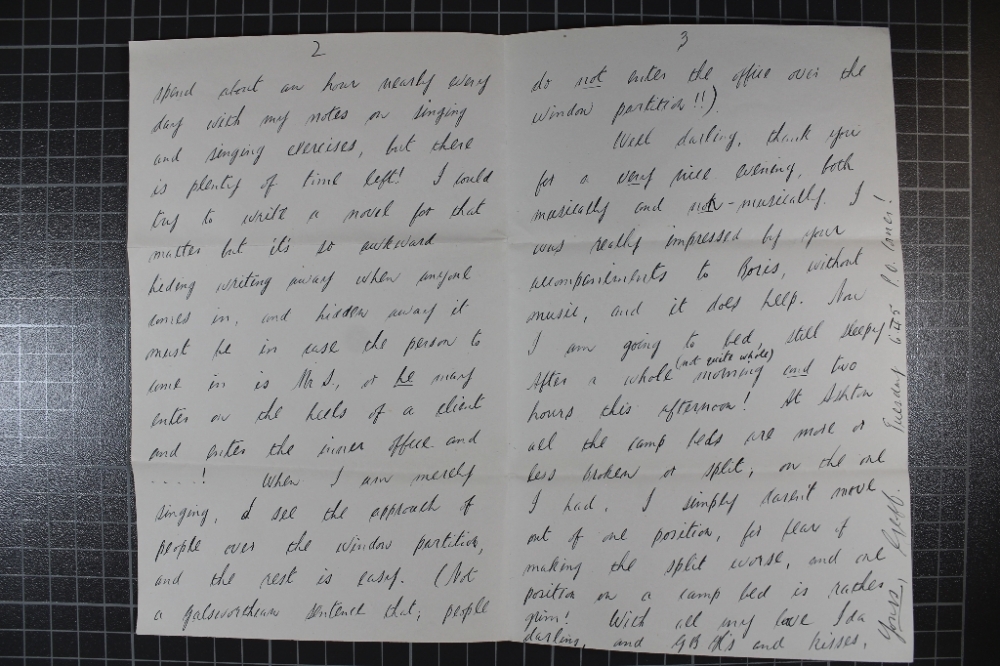 2
spend about an hour nearly every
day with my notes on singing
and singing exercises, but there
is plenty of time left! I could
try to write a novel for that
matter but it's so awkward
hiding writing away when anyone
comes in, and hidden away it
must be in case the person to
come in is Mr S., or he may
enter on the heels of a client
and enter the inner office and
....! When I am merely
singing, I see the approach of
people over the window partition,
and the rest is easy. (Not
a galsworthian sentence that; people
3
do not enter the office over the
window partition!!)
Well darling, thank you
for a very nice evening, both
musically and not-musically. I
was really impressed by your
accompaniments to Boris, without
music, and it does help. Now
I am going to bed, still sleepy
After a whole (not quite whole) morning and two
hours this afternoon! At Ashton
all the camp beds are more or
less broken or split; on the one
I had, I simply daren't move
out of one position, for fear of
making the split worse, and one
position on a camp bed is rather
grim! With all my love Ida
darling, and GB and kisses,
Yours, Geoff. Tuesday P.O. Corner!